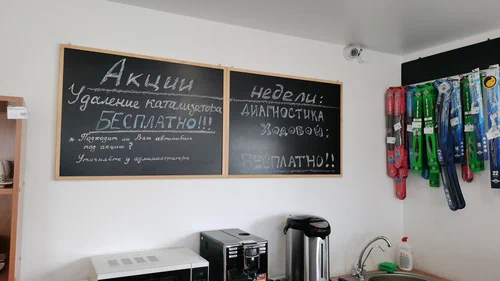 Акции
Удаление катализатора
БЕСПЛАТНО!!!
* Подходит ли Ваш автомобиль
под акцию?
Уточняйте у администратора
недели:
ДИАГНОСТИКА
Ходовой:
БЕСПЛАТНО!!